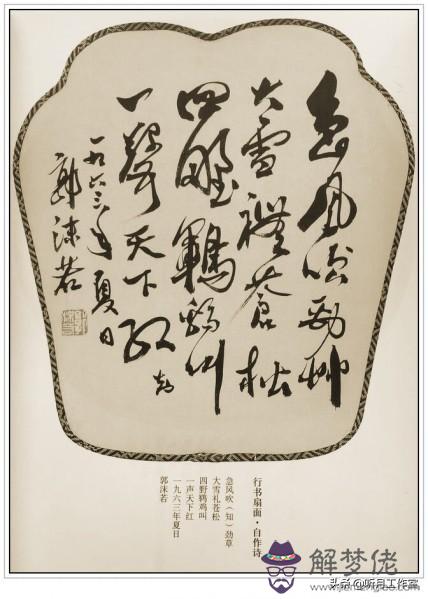 急風吹勁艸
大雪禮蒼松
四野鶤鷄叫
一聲天下紅 知
一九六三年夏日
郭沫若
行书扇面·自作诗
急风吹（知）劲草
大雪礼苍松
四野鸡叫
一声天下红
一九六三年夏日
郭沫若
解梦佬
头条@听月工作室